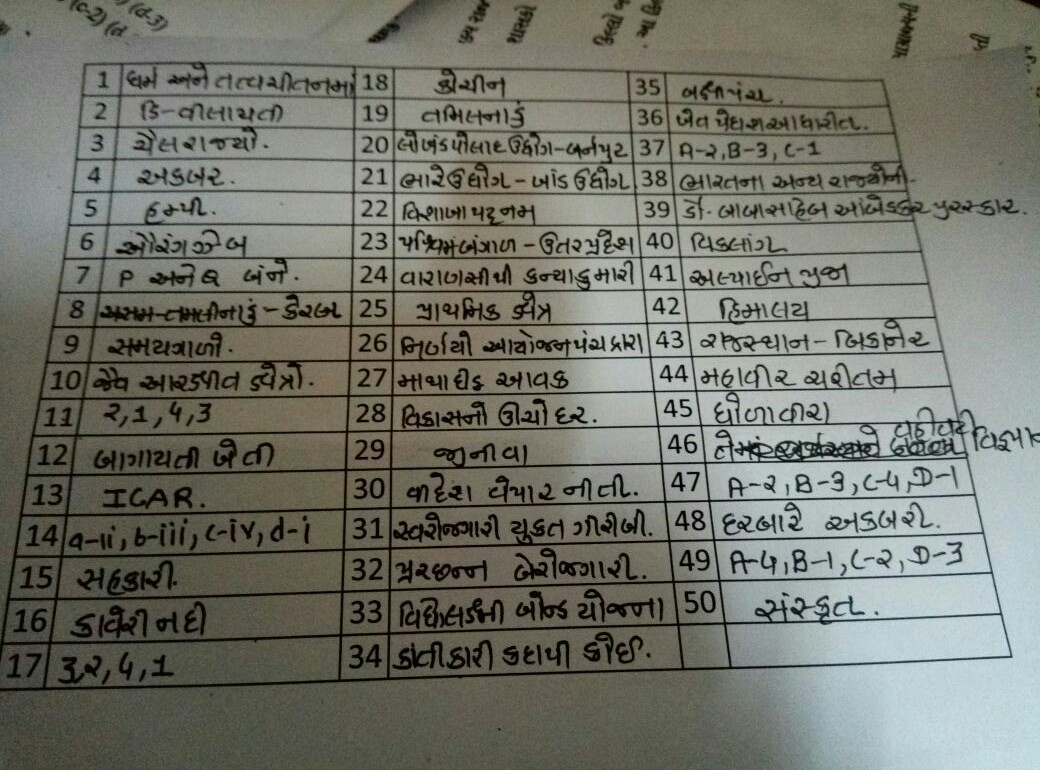 (c-2) (d (d-3)
1 ધર્મ અને તત્વચીતનમાં
2 ડિ-વીલાયતી
3 ચૈલરાજ્યો.
4 અકબર.
5 હમ્પી.
6 ઔરંગઝેબ
7 P અને Q બંને.
8 તમીલનાડું - કેરલ
9 સમયત્રાળી.
10 જૈવ આરક્ષીત ક્ષેત્રો.
11 ૨,1,4,3
12 બાગાયતી ખેતી
13 ICAR.
14 a-ii, b-iii, c-iv, d-i
15 સહકારી.
16 કાવેરી નદી
17 3,૨,4,1
18 કોચીન
19 તમિલનાડું
20 લોખંડ પોલાદ ઉદ્યોગ-બર્નપુર
21 ભારે ઉદ્યોગ - ખાંડ ઉદ્યોગ
22 વિશાખાપટ્ટનમ
23 પશ્ચિમ બંગાળ - ઉતરપ્રદેશ
24 વારાણસીથી કન્યાકુમારી
25 પ્રાથમિક ક્ષેત્ર
26 નિર્ણયો આયોજનપંચ દ્વારા
27 માથાદીઠ આવક
28 વિકાસનો ઊંચો દર.
29 જીનીવા
30 વિદેશ વેપાર નીતી.
31 સ્વરોજગારી યુકત ગરીબી.
32 પ્રરછન્ન બેરોજગારી.
33 બોન્ડ યોજના
34 ક્રાંતીકારી કદાપી કોઈ.
35
36 ખેત પેદાશ આધારીત.
37 A-૨, B-3, C-1
38 ભારતના અન્ય રાજ્યોની.
39 ડૉ. બાબાસાહેબ આંબેડકર પુરસ્કાર.
40 વિકલાંગ
41 અલ્પાઈન પુજા
42 હિમાલય
43 રાજસ્થાન - બિકાનેર
44 મહાવીર ચરીતમ
45 ધોળાવીરા
46
47 A-૨, B-3, C-4, D-1
48 દરબારે અકબરી.
49 A-4, B-1, C-૨, D-3
50 સંસ્કૃત.